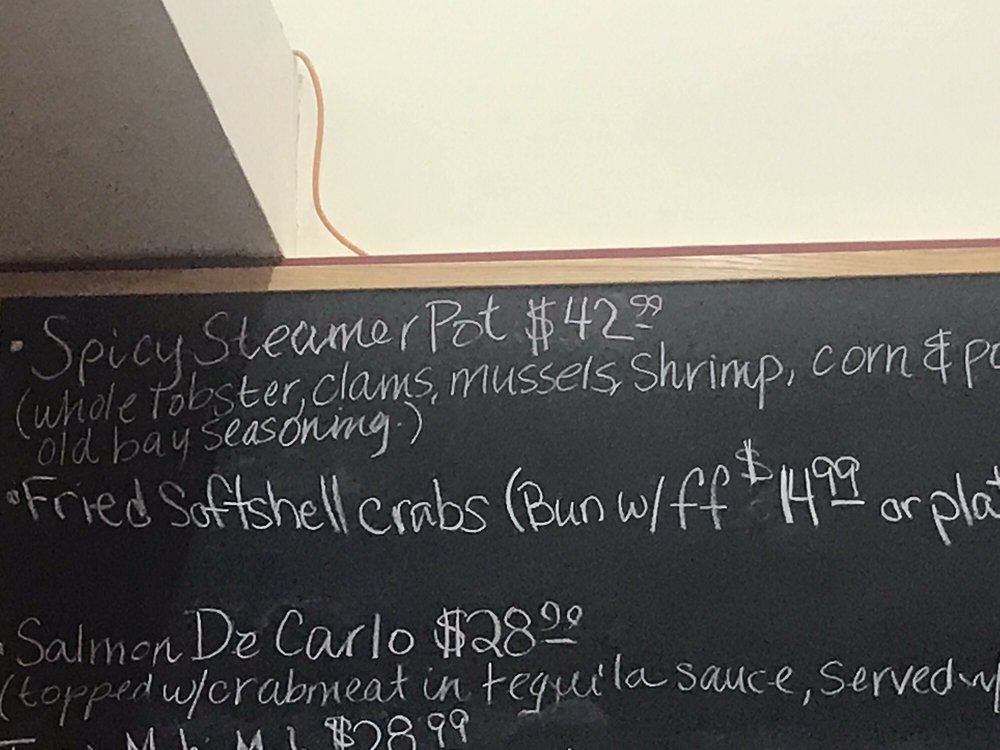 • Spicy Steamer Pot $42.99
(whole lobster, clams, mussels, shrimp, corn & po
old bay seasoning.)
• Fried Softshell crabs (Bun w/ ff $14.99 or plat
• Salmon De Carlo $28.99
(topped w/ crabmeat in tequila sauce, served w/
Mahi Mahi $28.99